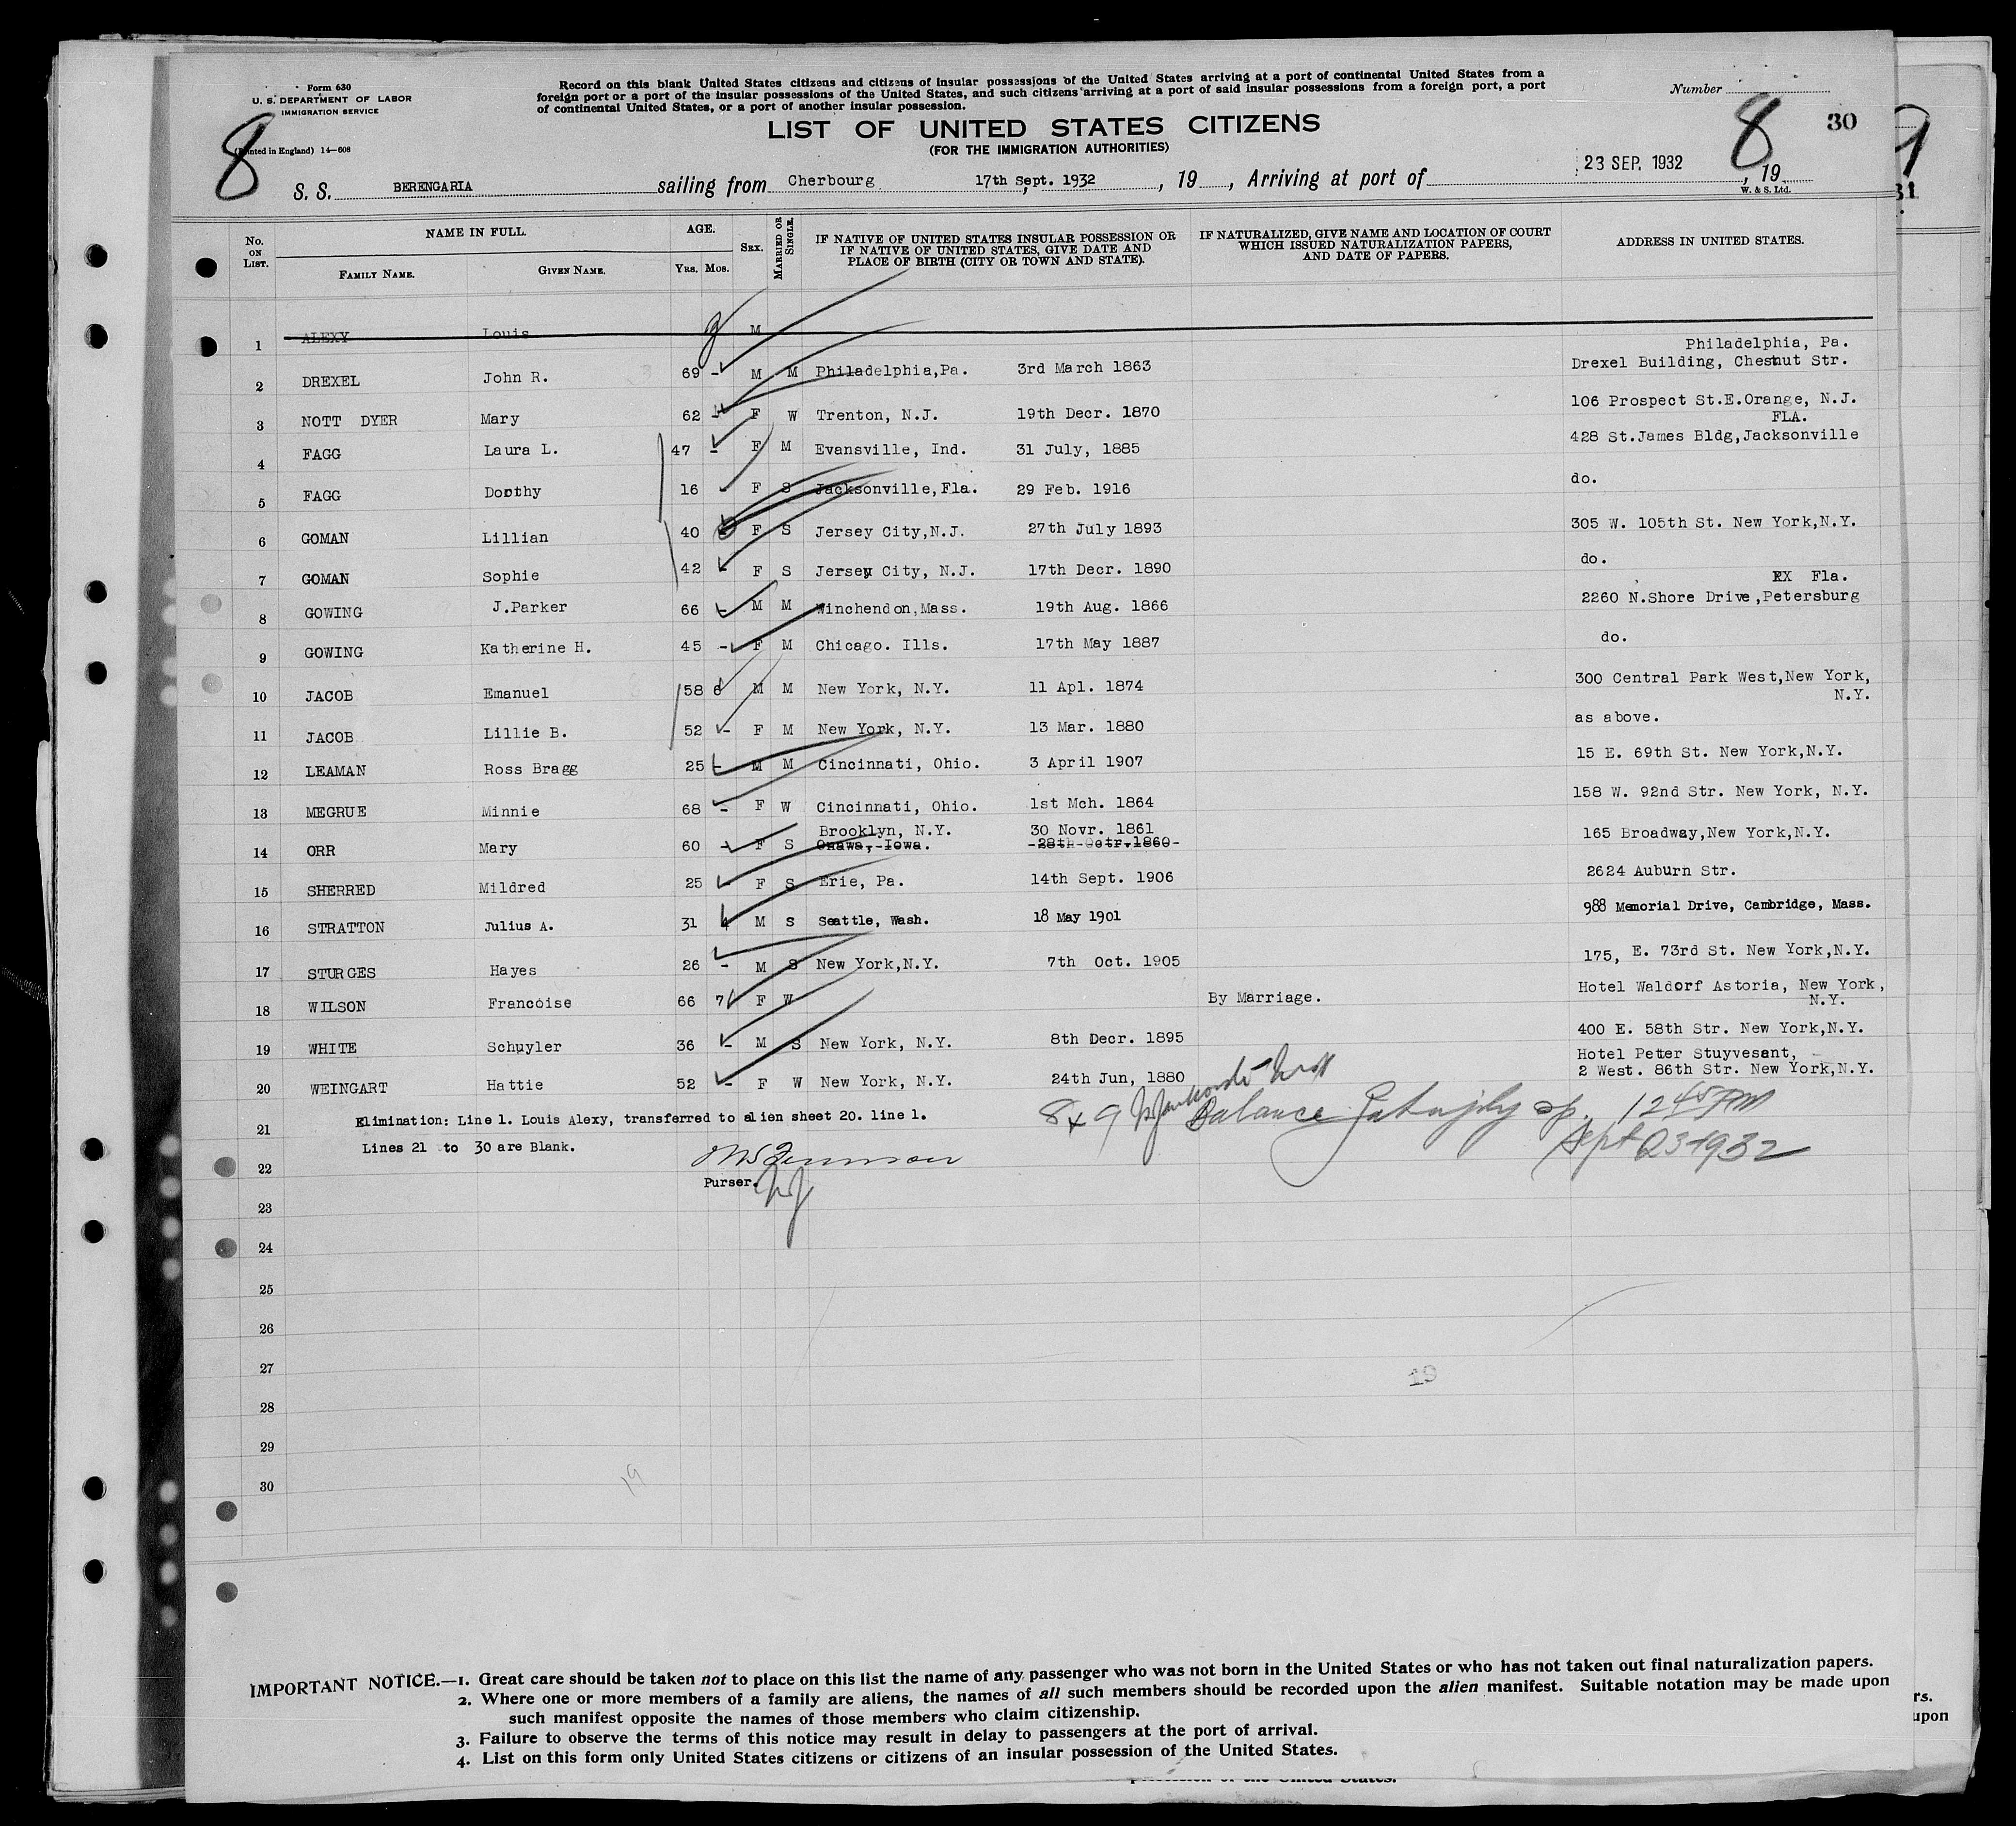 Form 630
U. S. DEPARTMENT OF LABOR
IMMIGRATION SERVICE
(Printed in England) 14—608
8
Record on this blank United States citizens and citizens of insular possessions of the United States arriving at a port of continental United States from a
foreign port or a port of the insular possessions of the United States, and such citizens arriving at a port of said insular possessions from a foreign port, a port
of continental United States, or a port of another insular possession.
Number
8 30
LIST OF UNITED STATES CITIZENS
(FOR THE IMMIGRATION AUTHORITIES)
S. S. BERENGARIA sailing from Cherbourg 17th Sept. 1932, 19 , Arriving at port of 23 SEP. 1932, 19
W. & S. Ltd.
No. ON LIST. NAME IN FULL. FAMILY NAME. GIVEN NAME. AGE. YRS. MOS. SEX. MARRIED OR SINGLE. IF NATIVE OF UNITED STATES INSULAR POSSESSION OR IF NATIVE OF UNITED STATES, GIVE DATE AND PLACE OF BIRTH (CITY OR TOWN AND STATE). IF NATURALIZED, GIVE NAME AND LOCATION OF COURT WHICH ISSUED NATURALIZATION PAPERS, AND DATE OF PAPERS. ADDRESS IN UNITED STATES.
1 ALEXY Louis M
Philadelphia, Pa.
2 DREXEL John R. 69 - M M Philadelphia,Pa. 3rd March 1863 Drexel Building, Chestnut Str.
3 NOTT DYER Mary 62 - F W Trenton, N.J. 19th Decr. 1870 106 Prospect St.E.Orange, N.J.
FLA.
4 FAGG Laura L. 47 - F M Evansville, Ind. 31 July, 1885 428 St.James Bldg,Jacksonville
5 FAGG Dorothy 16 - F S Jacksonville,Fla. 29 Feb. 1916 do.
6 GOMAN Lillian 40 F S Jersey City,N.J. 27th July 1893 305 W. 105th St. New York,N.Y.
7 GOMAN Sophie 42 - F S Jersey City, N.J. 17th Decr. 1890 do.
Fla.
8 GOWING J.Parker 66 - M M Winchendon,Mass. 19th Aug. 1866 2260 N.Shore Drive,Petersburg
9 GOWING Katherine H. 45 - F M Chicago. Ills. 17th May 1887 do.
10 JACOB Emanuel 58 6 M M New York, N.Y. 11 Apl. 1874 300 Central Park West,New York,
N.Y.
11 JACOB Lillie B. 52 - F M New York, N.Y. 13 Mar. 1880 as above.
12 LEAMAN Ross Bragg 25 - M M Cincinnati, Ohio. 3 April 1907 15 E. 69th St. New York,N.Y.
13 MEGRUE Minnie 68 - F W Cincinnati, Ohio. 1st Mch. 1864 158 W. 92nd Str. New York, N.Y.
Brooklyn, N.Y. 30 Novr. 1861
14 ORR Mary 60 - F S Onawa, Iowa. 28th Octr.1860 165 Broadway,New York,N.Y.
15 SHERRED Mildred 25 - F S Erie, Pa. 14th Sept. 1906 2624 Auburn Str.
16 STRATTON Julius A. 31 4 M S Seattle, Wash. 18 May 1901 988 Memorial Drive, Cambridge, Mass.
17 STURGES Hayes 26 - M S New York,N.Y. 7th Oct. 1905 175, E. 73rd St. New York,N.Y.
18 WILSON Francoise 66 7 F W By Marriage. Hotel Waldorf Astoria, New York,
N.Y.
19 WHITE Schuyler 36 - M S New York, N.Y. 8th Decr. 1895 400 E. 58th Str. New York,N.Y.
Hotel Petter Stuyvesant,
20 WEINGART Hattie 52 - F W New York, N.Y. 24th Jun, 1880 2 West. 86th Str. New York,N.Y.
21 Elimination: Line 1. Louis Alexy, transferred to alien sheet 20. line 1.
8 + 9 Balance 12 45 PM
Sept 23-1932
22 Lines 21 to 30 are Blank.
Purser.
23
24
25
26
27
19
28
29
30
19
IMPORTANT NOTICE.—1. Great care should be taken not to place on this list the name of any passenger who was not born in the United States or who has not taken out final naturalization papers.
2. Where one or more members of a family are aliens, the names of all such members should be recorded upon the alien manifest. Suitable notation may be made upon
such manifest opposite the names of those members who claim citizenship.
3. Failure to observe the terms of this notice may result in delay to passengers at the port of arrival.
4. List on this form only United States citizens or citizens of an insular possession of the United States.
rs.
upon